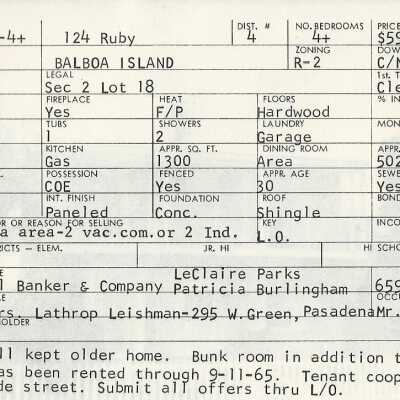 DIST. # NO. BEDROOMS PRICE
-4+ 124 Ruby 4 4+ $59
ZONING DOW
BALBOA ISLAND R-2 C/N
LEGAL 1st. T
Sec 2 Lot 18 Cle
FIREPLACE HEAT FLOORS % IN
Yes F/P Hardwood
TUBS SHOWERS LAUNDRY MON
1 2 Garage
KITCHEN APPR. SQ. FT. DINING ROOM APPR
Gas 1300 Area 502
POSSESSION FENCED APPR. AGE SEWE
COE Yes 30 Yes
INT. FINISH FOUNDATION ROOF BOND
Paneled Conc. Shingle
OR OR REASON FOR SELLING KEY INCO
a area-2 vac.com.or 2 Ind. L.O.
RICTS - ELEM. JR. HI HI SCHOOL
LeClaire Parks
l Banker & Company Patricia Burlingham 659
OCCU
rs. Lathrop Leishman-295 W.Green, Pasadena Mr.
HOLDER
ll kept older home. Bunk room in addition t
as been rented through 9-11-65. Tenant coop
de street. Submit all offers thru L/O.